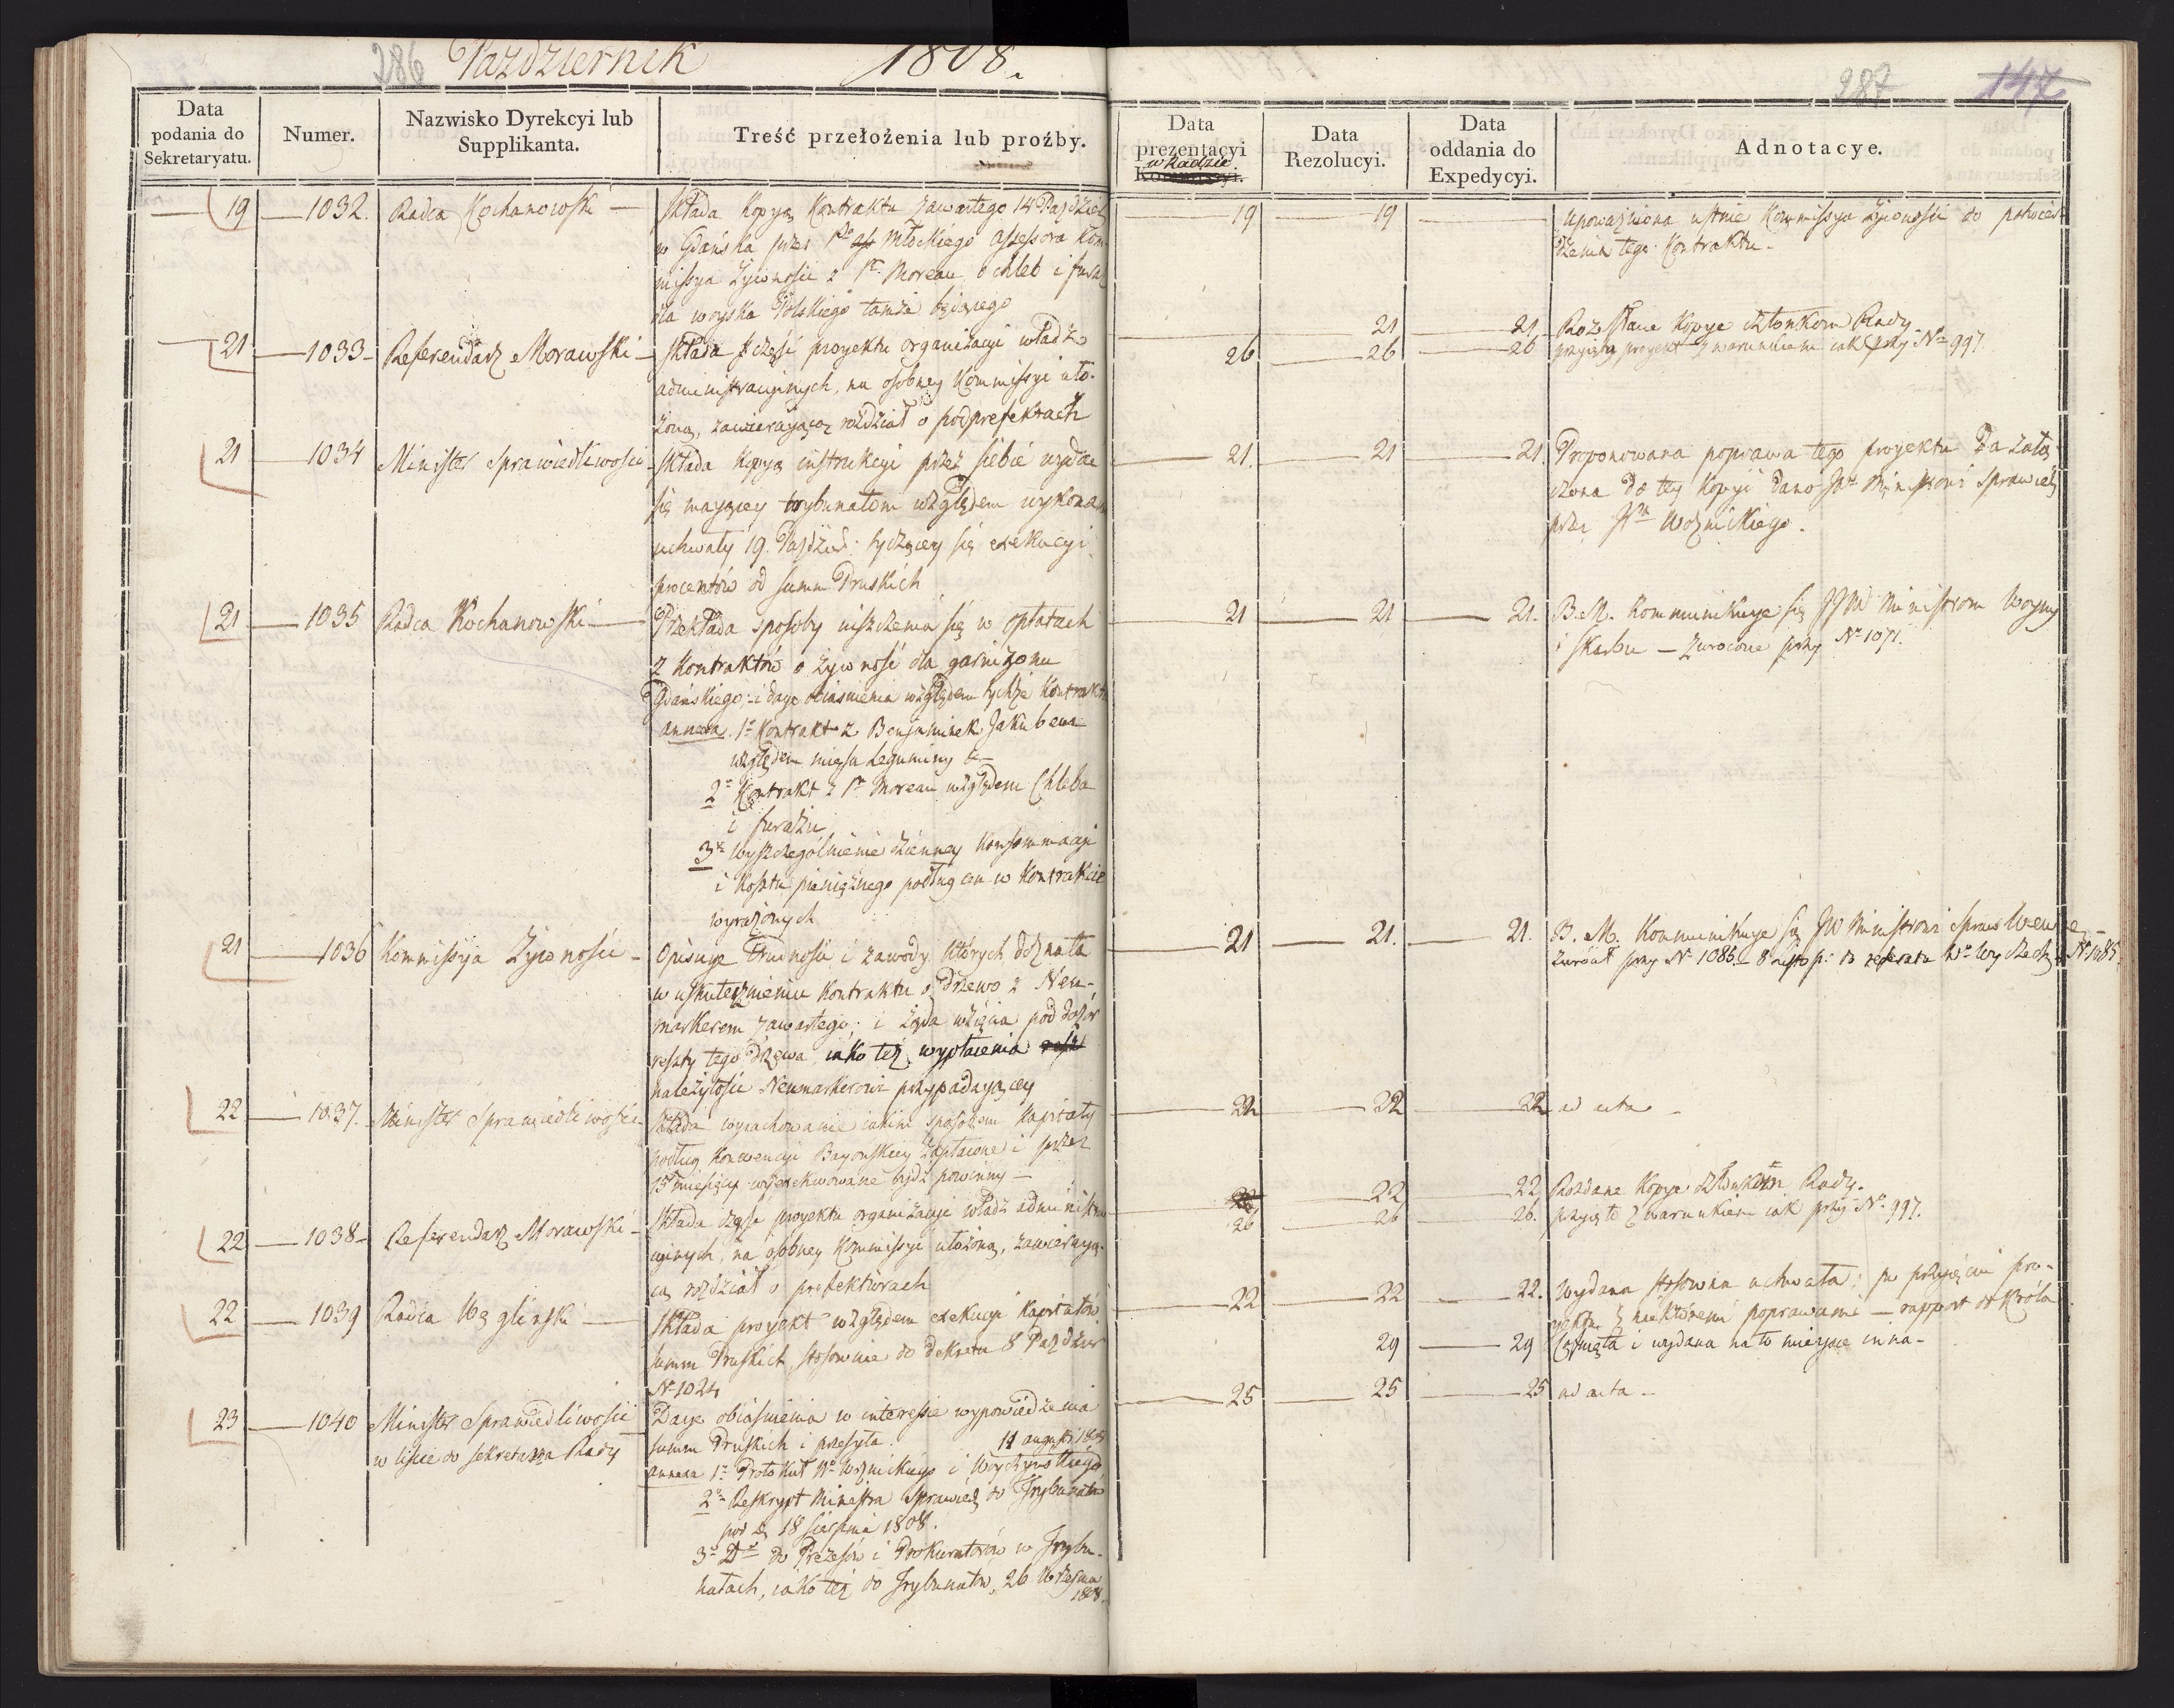 286 Pazdziernik 1808.
Data podania do Sekretaryatu.
Numer.
Nazwisko Dyrekcyi lub Supplikanta.
Treść przełożenia lub proźby.
19 — 1032. Radca Kochanowski —
Składa kopyą Kontraktu zawartego 14 Paździer
w Gdańsku przez Młockiego assessora Kom-
missyi Żywności z Moreau o chleb i furaż
dla woyska Polskiego tamże będącego
21 — 1033 — Referendarz Morawski —
Składa część proyektu organizacyi władz
administracyinych, na osobney Kommissyi uło-
żoną, zawieraiącą rozdział o podprefektach
21 — 1034 Minister Sprawiedliwości
Składa kopyą instrukcyi przez siebie wydać
się maiącey trybunałom względem wykona
uchwały 19. Paźdź: tyczącey się exekucyi
procentów od summ Pruskich
21 — 1035 Radca Kochanowski —
Przekłada sposoby niszczenia się w opłatach
z Kontraktów o żywność dla garnizonu
Gdańskiego, i daye obiaśnienia względem tychże Kontrakt
annexa. 1º Kontrakt z Benjaminek Jakubem
względem mięsa Leguminy &
2º Kontrakt z Moreau względem Chleba
i furażu
3º Wyszczególnienie dzienney Konsommacyi
i kosztu pieniężnego podług cen w Kontrakcie
wyrażonych
21 — 1036 Kommissya Żywności —
Opisuye trudności i zawody których doznała
w uskutecznieniu Kontraktu o Drzewo z Neu-
markerem zawartego; i żąda wzięcia pod dozór
reszty tego Drzewa iako też wypłacenia
należytości Neumarkerowi przypadaiącey
22 — 1037. Minister Sprawiedliwości
Składa wyrachowanie iakim sposobem Kapitały
podług Konwencyi Bayonskiey zapłacone i przez
miesięcy wyexekwowane bydź powinny —
22 — 1038 — Referendarz Morawski —
Składa część proyektu organizacyi władz administra
cyinych, na osobney Kommissyi ułożoną, zawieraią-
cą rozdział o prefekturach
22 — 1039 Radca Węgliński —
Składa proyekt względem exekucyi Kapitałów
summ Pruskich, stosownie do dekretu 8 Paździer
Nº 1024
23 — 1040 Minister Sprawiedliwości
w liście do Sekretarza Rady
Daye obiaśnienia w interessie wypowiedzenia
summ Pruskich i przesyła.
11 augusti 1808
annexa 1º Protokuł Wº Woźnickiego i Wyczyńskiego
2º Reskrypt Ministra Sprawied do Trybunałów
pod d. 18 Sierpnia 1808.
3º Dº do Prezesów i Prokuratorów w Trybu-
nałach, iako też do Trybunałów, 26 Września
1808.
287 147
Data prezentacyi w Radzie Kommissyi.
Data Rezolucyi.
Data oddania do Expedycyi.
Adnotacye.
19 — 19 —
Upoważniona ustnie Kommissya Żywności do potwier-
dzenia tego Kontraktu —
21 — 21. Rozesłane Kopye członkom Rady
26 — 26 — 26 przyięty proyekt z warunkiem iak przy Nº 997.
21. — 21 — 21. Proponowana poprawa tego proyektu załą-
czona do tey kopyi dano Jº Ministrowi Sprawied
przez Woźnickiego.
21 — 21 — 21. B. M. Kommunikuye się JJW Ministrom Woyny
i Skarbu — zwrocone przy Nº 1071.
21 — 21. — 21. B. M. Kommunikuye się JW Ministrowi Spraw Wewnę
zwrócił przy Nº 1085. — do referatu Nº 1085.
22 — 22 — 22 ad acta —
22 — 22 — 22 Rozdane Kopye członkom Rady.
26 — 26 — 26. przyięto z warunkiem iak przy Nº 997.
22 — 22 — 22. Wydana stosowna uchwała; po przyięciu pro-
yektu z niektóremi poprawami — rapport do Króla
29 — 29 Cofnięta i wydana na to mieysce inna —
25 — 25 — 25 ad acta —